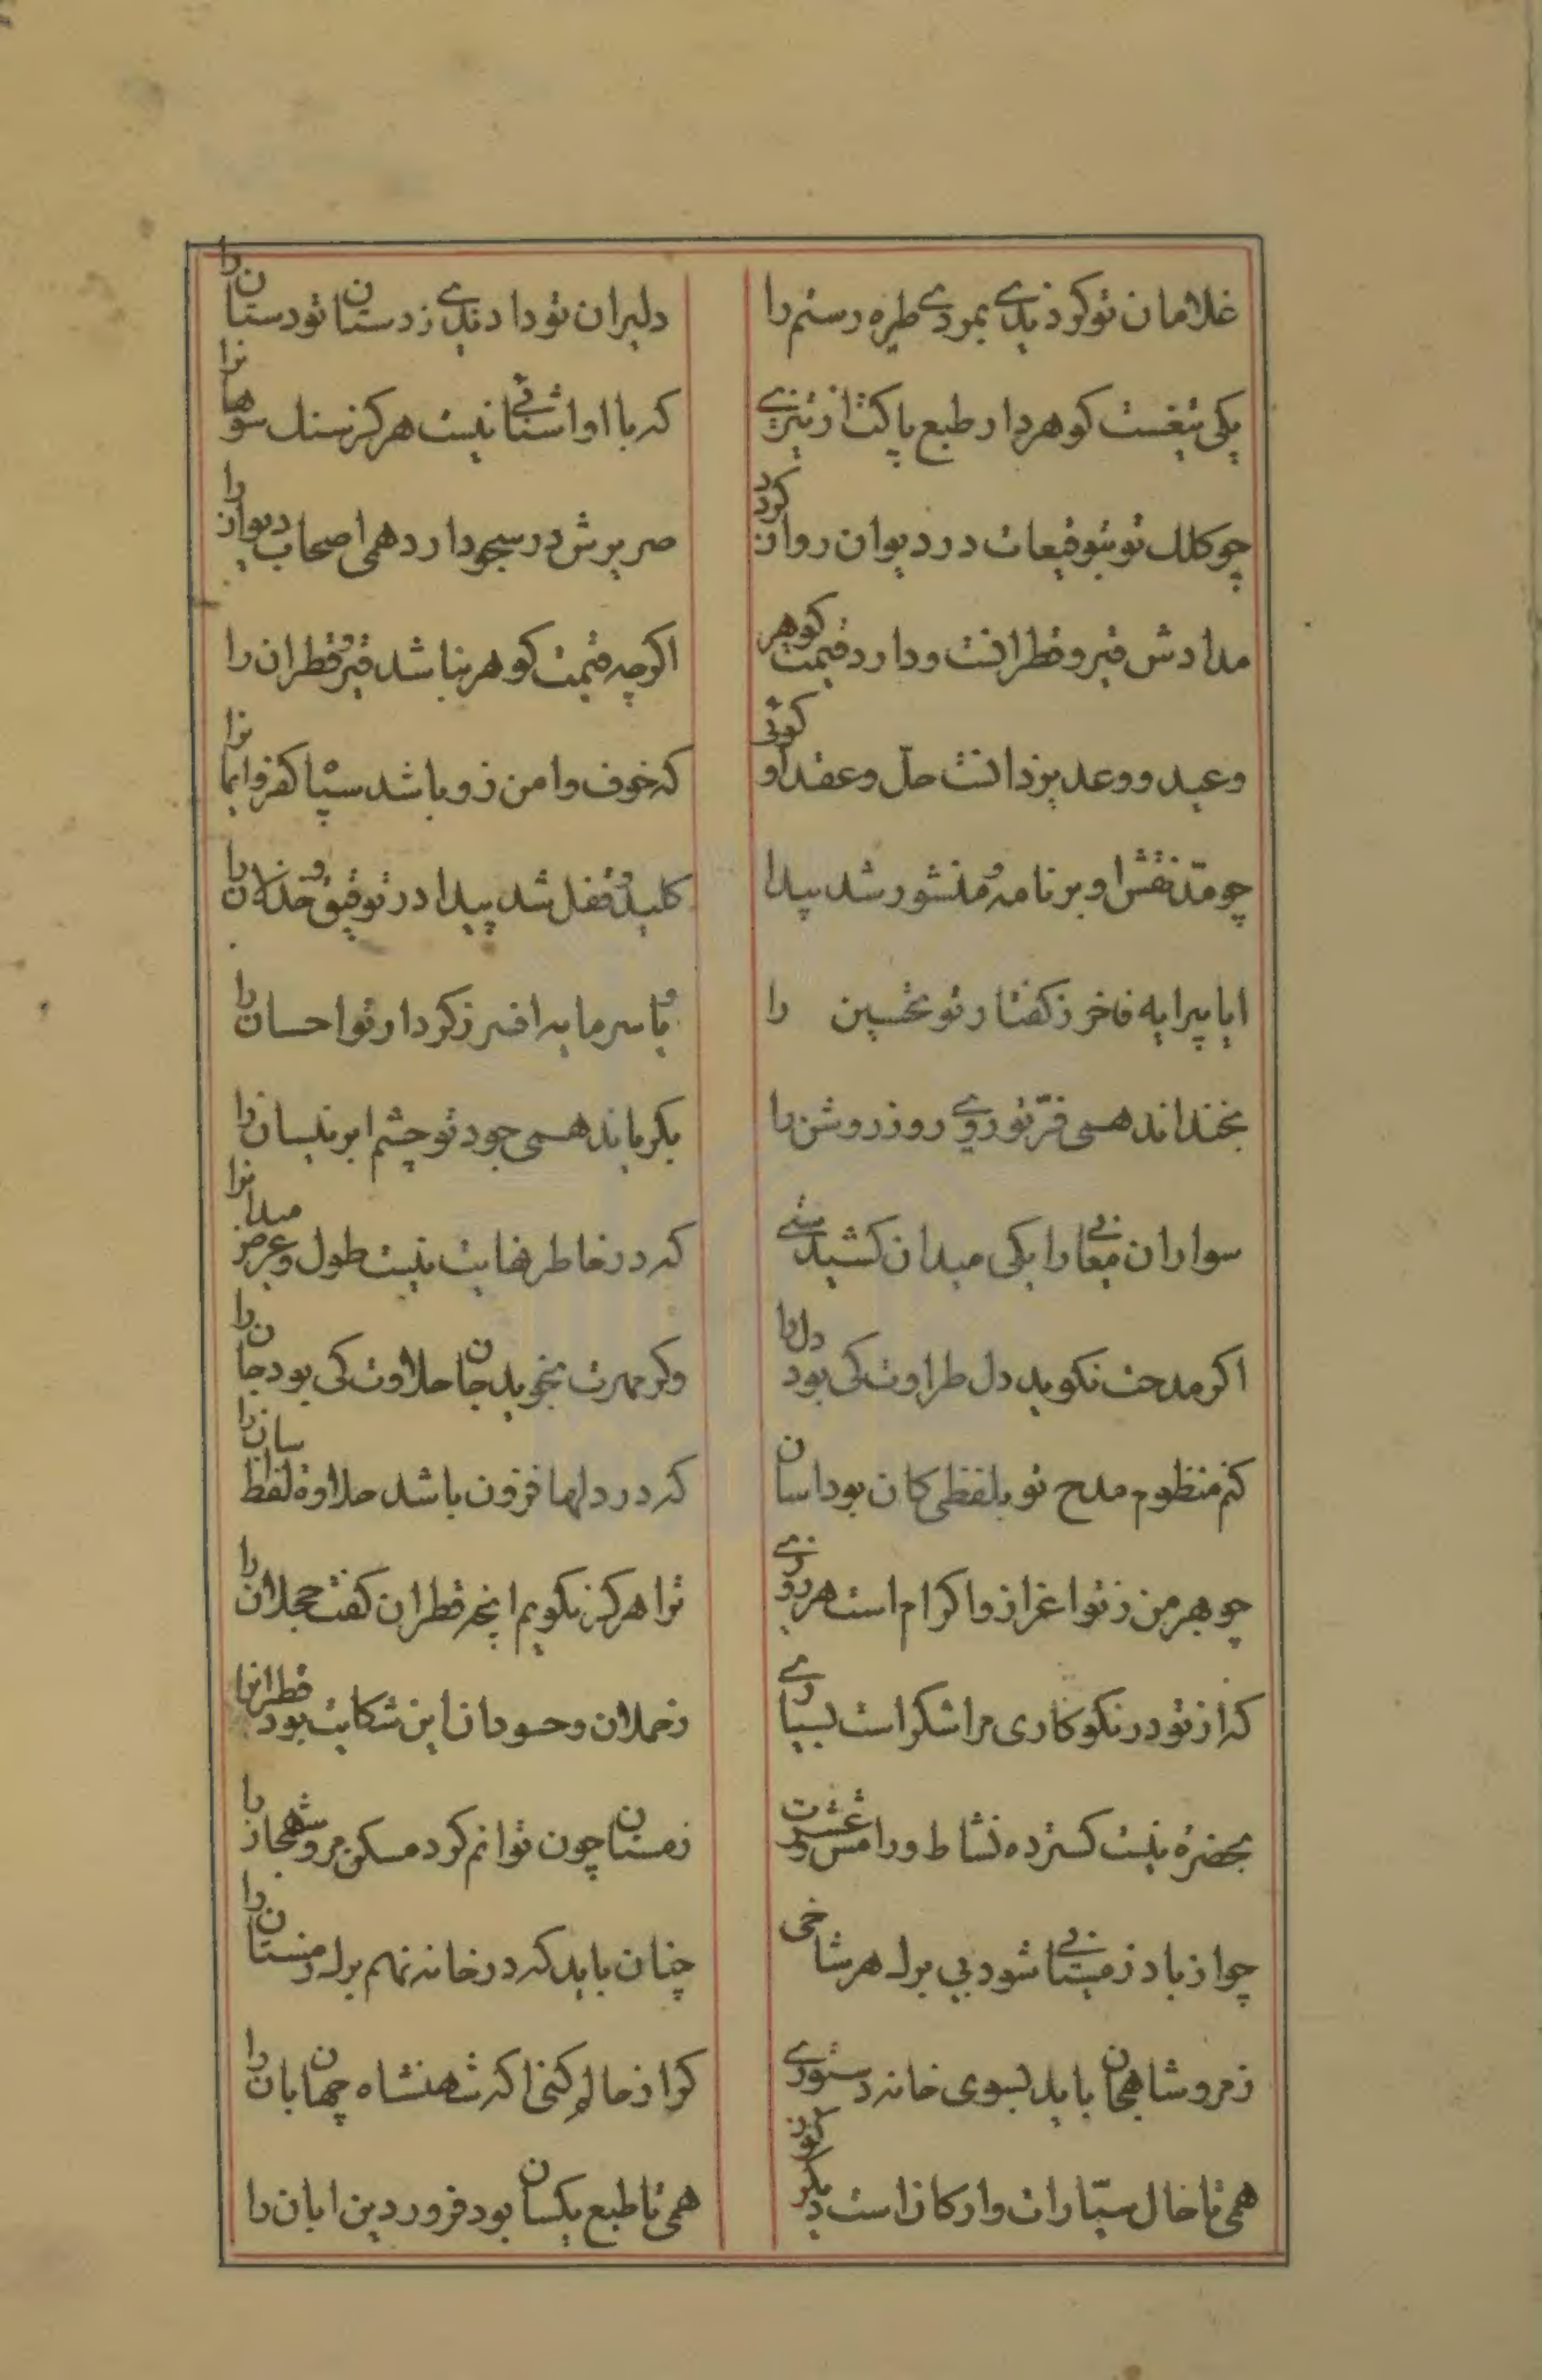 غلامان تو کردندی بمردی طیره رستم را دلیران تو دادندی زدستان تو دستان را
یکی تیغست کوهردار طبع پاکت از تیزی که با او اشنائی نیست هرکز سنک سوهانرا
چو کلک تو بتوقیعات در دیوان روان کردد صریرش در سجود ارد همی اصحاب دیوان را
مدادش قیر و قطرانست و دارد قیمت کوهر اکرچه قیمت کوهر نباشد قیر و قطران را
وعید و وعد یزدانست حل و عقد او کوئی که خوف و امن زو باشد سپاه کفر و ایمانرا
چو مد نقش او بر نامه و منشور شد پیدا کلید و قفل شد پیدا در توفیق و خذلان را
ایا پیرایه فاخر ز کفتار تو تحسین را و یا سرمایه افسر ز کردار تو احسان را
بخنداند همی فر تو روی روز روشن را بکریاند همی جود تو چشم ابر نیسان را
سواران معانی را یکی میدان کشیدستی که در خاطر نهایت نیست طول و عرض میدانرا
اکر مدحت نکوید دل طراوت کی بود دل را وکر مهرت نجوید جان حلاوت کی بود جان را
کنم منظوم مدح تو بلفظی کان بود اسان که در دلها فزون باشد حلاوة لفظ اسان را
چو بهر من ز تو اعزاز و اکرام است هر روزی ترا هرکز نکویم انچه قطران کفت مجلان را
که از تو در نکوکاری مرا شکر است بسیاری ز مملان و حسودان این شکایت بود قطرانرا
بحضرة نیست کسترده نشاط و رامش و عشرت زمستان چون توانم کرد مسکن مرو شهجان را
چو از باد زمستانی شود بی برک هر شاخی چنان باید که در خانه نهم برک زمستان را
ز مرو شاهجان باید بسوی خانه دستوری کرا از حال کنی اکه شهنشاه جهانبان را
همی تا خال سیارات و ارکان است دیکرکون همی تا طبع یکسان بود فروردین ابان را